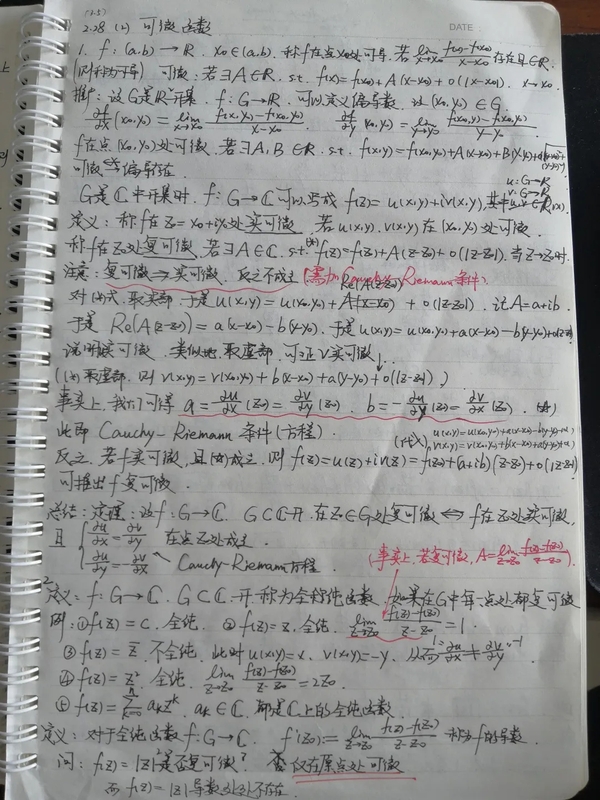 (15)
DATE:
2.28 (2) 可微函数
1. f: (a,b) → R. x₀∈(a,b). 称f在点x₀处可导, 若 lim_{x→x₀} (f(x)-f(x₀))/(x-x₀) 存在且∈R.
可微: 若∃A∈R. s.t. f(x)=f(x₀)+A(x-x₀)+o(|x-x₀|). x→x₀
推广: 设G是R²开集. f: G→R. 可以定义偏导数. 设(x₀,y₀)∈G.
∂f/∂x (x₀,y₀) = lim_{x→x₀} (f(x,y₀)-f(x₀,y₀))/(x-x₀) ∂f/∂y (x₀,y₀) = lim_{y→y₀} (f(x₀,y)-f(x₀,y₀))/(y-y₀)
f在点(x₀,y₀)处可微, 若∃A,B∈R. s.t. f(x,y)=f(x₀,y₀)+A(x-x₀)+B(y-y₀)+
偏导存在
u: G→R
v: G→R
G是C中开集时, f: G→C 可以写成 f(z)=u(x,y)+iv(x,y),
定义: 称f在z₀=x₀+iy₀处实可微 若u(x,y), v(x,y)在(x₀,y₀)处可微.
称f在z₀处复可微, 若∃A∈C. s.t. (*) f(z)=f(z₀)+A(z-z₀)+o(|z-z₀|), 当z→z₀时.
注意: 复可微⟹实可微, 反之不成立 (需加Cauchy-Riemann条件)
对(*)式, 取实部, 于是u(x,y)=u(x₀,y₀)+Re(A(z-z₀))+o(|z-z₀|). 记A=a+ib.
于是 Re(A(z-z₀))=a(x-x₀)-b(y-y₀). 于是u(x,y)=u(x₀,y₀)+a(x-x₀)-b(y-y₀)+o(|z-z₀|)
说明u实可微. 类似地, 取虚部, 可证v实可微.
((*)取虚部, 则 v(x,y)=v(x₀,y₀)+b(x-x₀)+a(y-y₀)+o(|z-z₀|))
事实上, 我们可得 a=∂u/∂x (z₀)=∂v/∂y (z₀), b=-∂u/∂y (z₀)=∂v/∂x (z₀).
此即 Cauchy-Riemann 条件(方程).
(代入) u(x,y)=u(x₀,y₀)+a(x-x₀)-b(y-y₀)+o( )
v(x,y)=v(x₀,y₀)+b(x-x₀)+a(y-y₀)+o( )
反之, 若f实可微, 且 成立, 则f(z)=u(z)+iv(z)=f(z₀)+(a+ib)(z-z₀)+o(|z-z₀|)
可推出f复可微.
总结: 定理: 设f: G→C. G⊂C开. 在z₀∈G处复可微 ⟺ f在z₀处实可微,
且 { ∂u/∂x=∂v/∂y 在点z₀处成立.
∂u/∂y=-∂v/∂x Cauchy-Riemann方程.
(事实上, 若复可微, A=lim_{z→z₀} (f(z)-f(z₀))/(z-z₀))
2. 定义: f: G→C. G⊂C 开. 称为全纯函数, 如果在G中每一点处都复可微
例: ① f(z)=C, 全纯. ② f(z)=z, 全纯. lim_{z→z₀} (f(z)-f(z₀))/(z-z₀)=1.
③ f(z)=z̄. 不全纯. 此时u(x,y)=x, v(x,y)=-y. 从而 1=∂u/∂x≠∂v/∂y=-1
④ f(z)=z². 全纯. lim_{z→z₀} (f(z)-f(z₀))/(z-z₀)=2z₀.
⑤ f(z)=Σ_{k=0}^{n} a_k z^k. a_k∈C, 都是C上的全纯函数.
定义: 对于全纯函数f: G→C. f'(z₀):=lim_{z→z₀} (f(z)-f(z₀))/(z-z₀) 称为f的导数.
问: f(z)=|z|²是否复可微? 否 仅在原点处可微
而f(z)=|z|导数处处不存在.